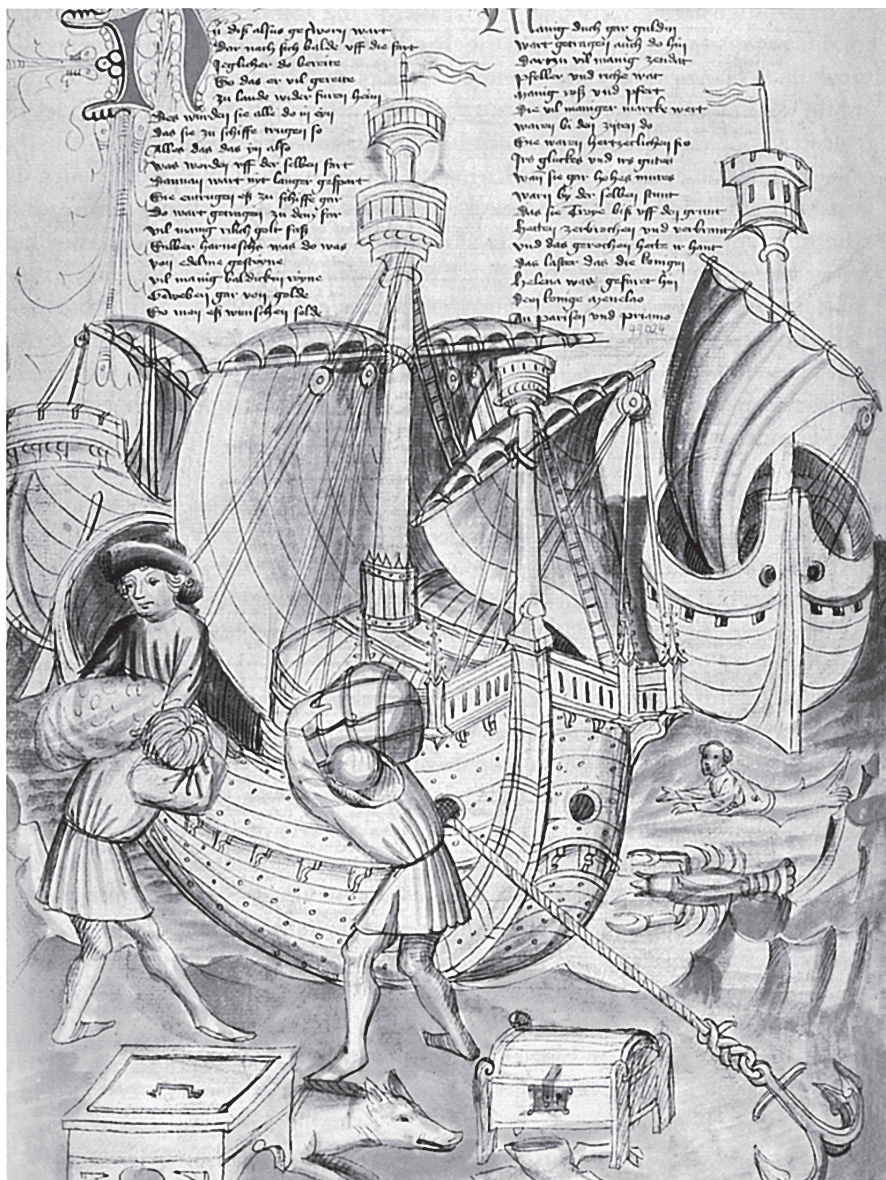 Nu diß alsus gesworn wart
Dar nach sich balde vff die fart
Jeglicher do bereite
So das er vil gereite
zu lande wider furen hein
Des wurden sie alle do in eyn
das sie zu schiffe trugen so
Alles das das yn also
was worden vff der selben fart
Dannan wart nyt langer gespart
Sie entrugen eß zu schiffe gar
Do wart getragen zu dem far
vil manig rilich golt faß
Silber harnesche was do was
von edelme gesteyne
vil manig baldickin
Geweben gar von golde
So man eß wunschen solde
Manig duch gar guldin
wart getragen auch do hin
Dartzu vil manig zendat
Pfeller vnd riche wat
Manig roß vnd pfert
Die vil maniger marcke wert
waren bi den zijten do
Sie waren hertzeclichen fro
Irs gluckes vnd irs gutes
wan sie gar hohes mutes
warn by der selben stunt
das sie Troye biß vff den grunt
Hetten zerbrochen vnd verbrant
vnd das gerochen hette ir hant
das laster das die konigin
Helena was gefuret hin
Dem konige menelao
An parisen vnd priamo